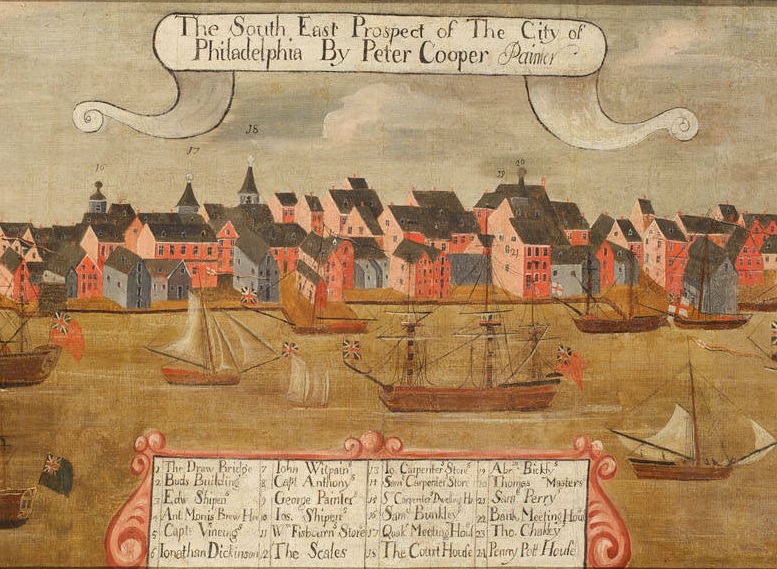 The South East Prospect of The City of
Philadelphia By Peter Cooper Painter
16
17
18
19 20
21
1 The Draw Bridge
2 Buds Building
3 Edw Shipens
4 Ant Morris Brew Ho
5 Capt Vineings
6 Jonathan Dickinson
7 Iohn Witpains
8 Capt Anthonys
9 George Painter
10 Ios. Shipens
11 Wm Fisbourns Store
12 The Scales
13 Io Carpenters Store
14 Sam Carpenter Store
15 S Carpenters Dwelling Ho
16 Saml Bunkley
17 Quakrs Meeting House
18 The Court House
19 Abrm Bickly
20 Thomas Masters
21 Saml Perry
22 Bank Meeting House
23 Tho. Chalkey
24 Penny Pott House